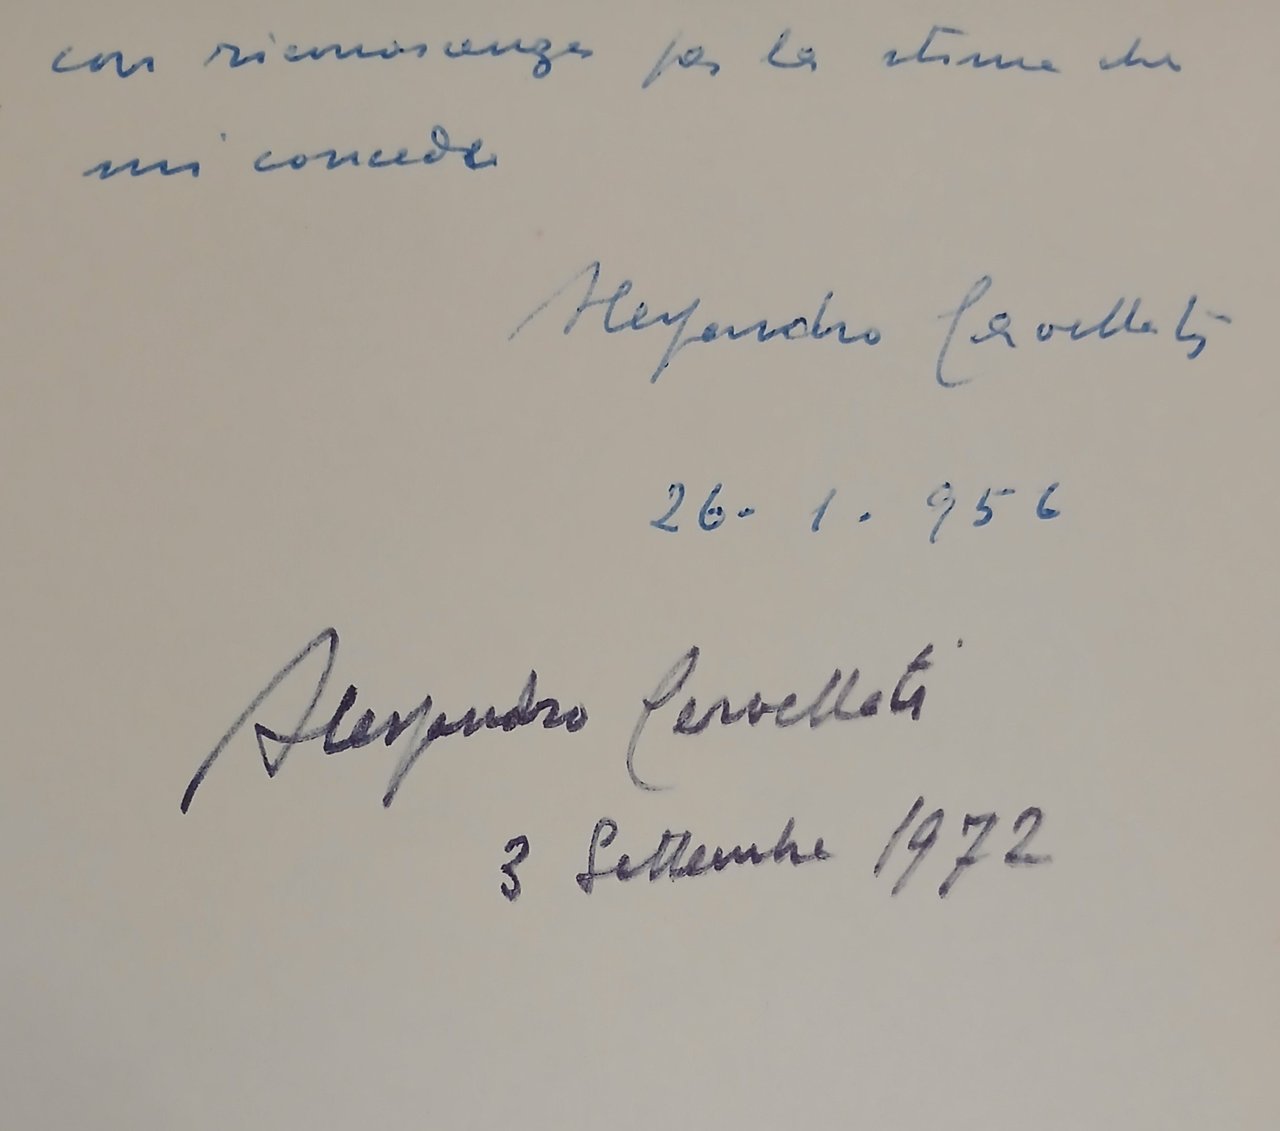 con riconoscenza per la stima che
mi concede
Alessandro Cervellati
26. 1. 956
Alessandro Cervellati
3 Settembre 1972